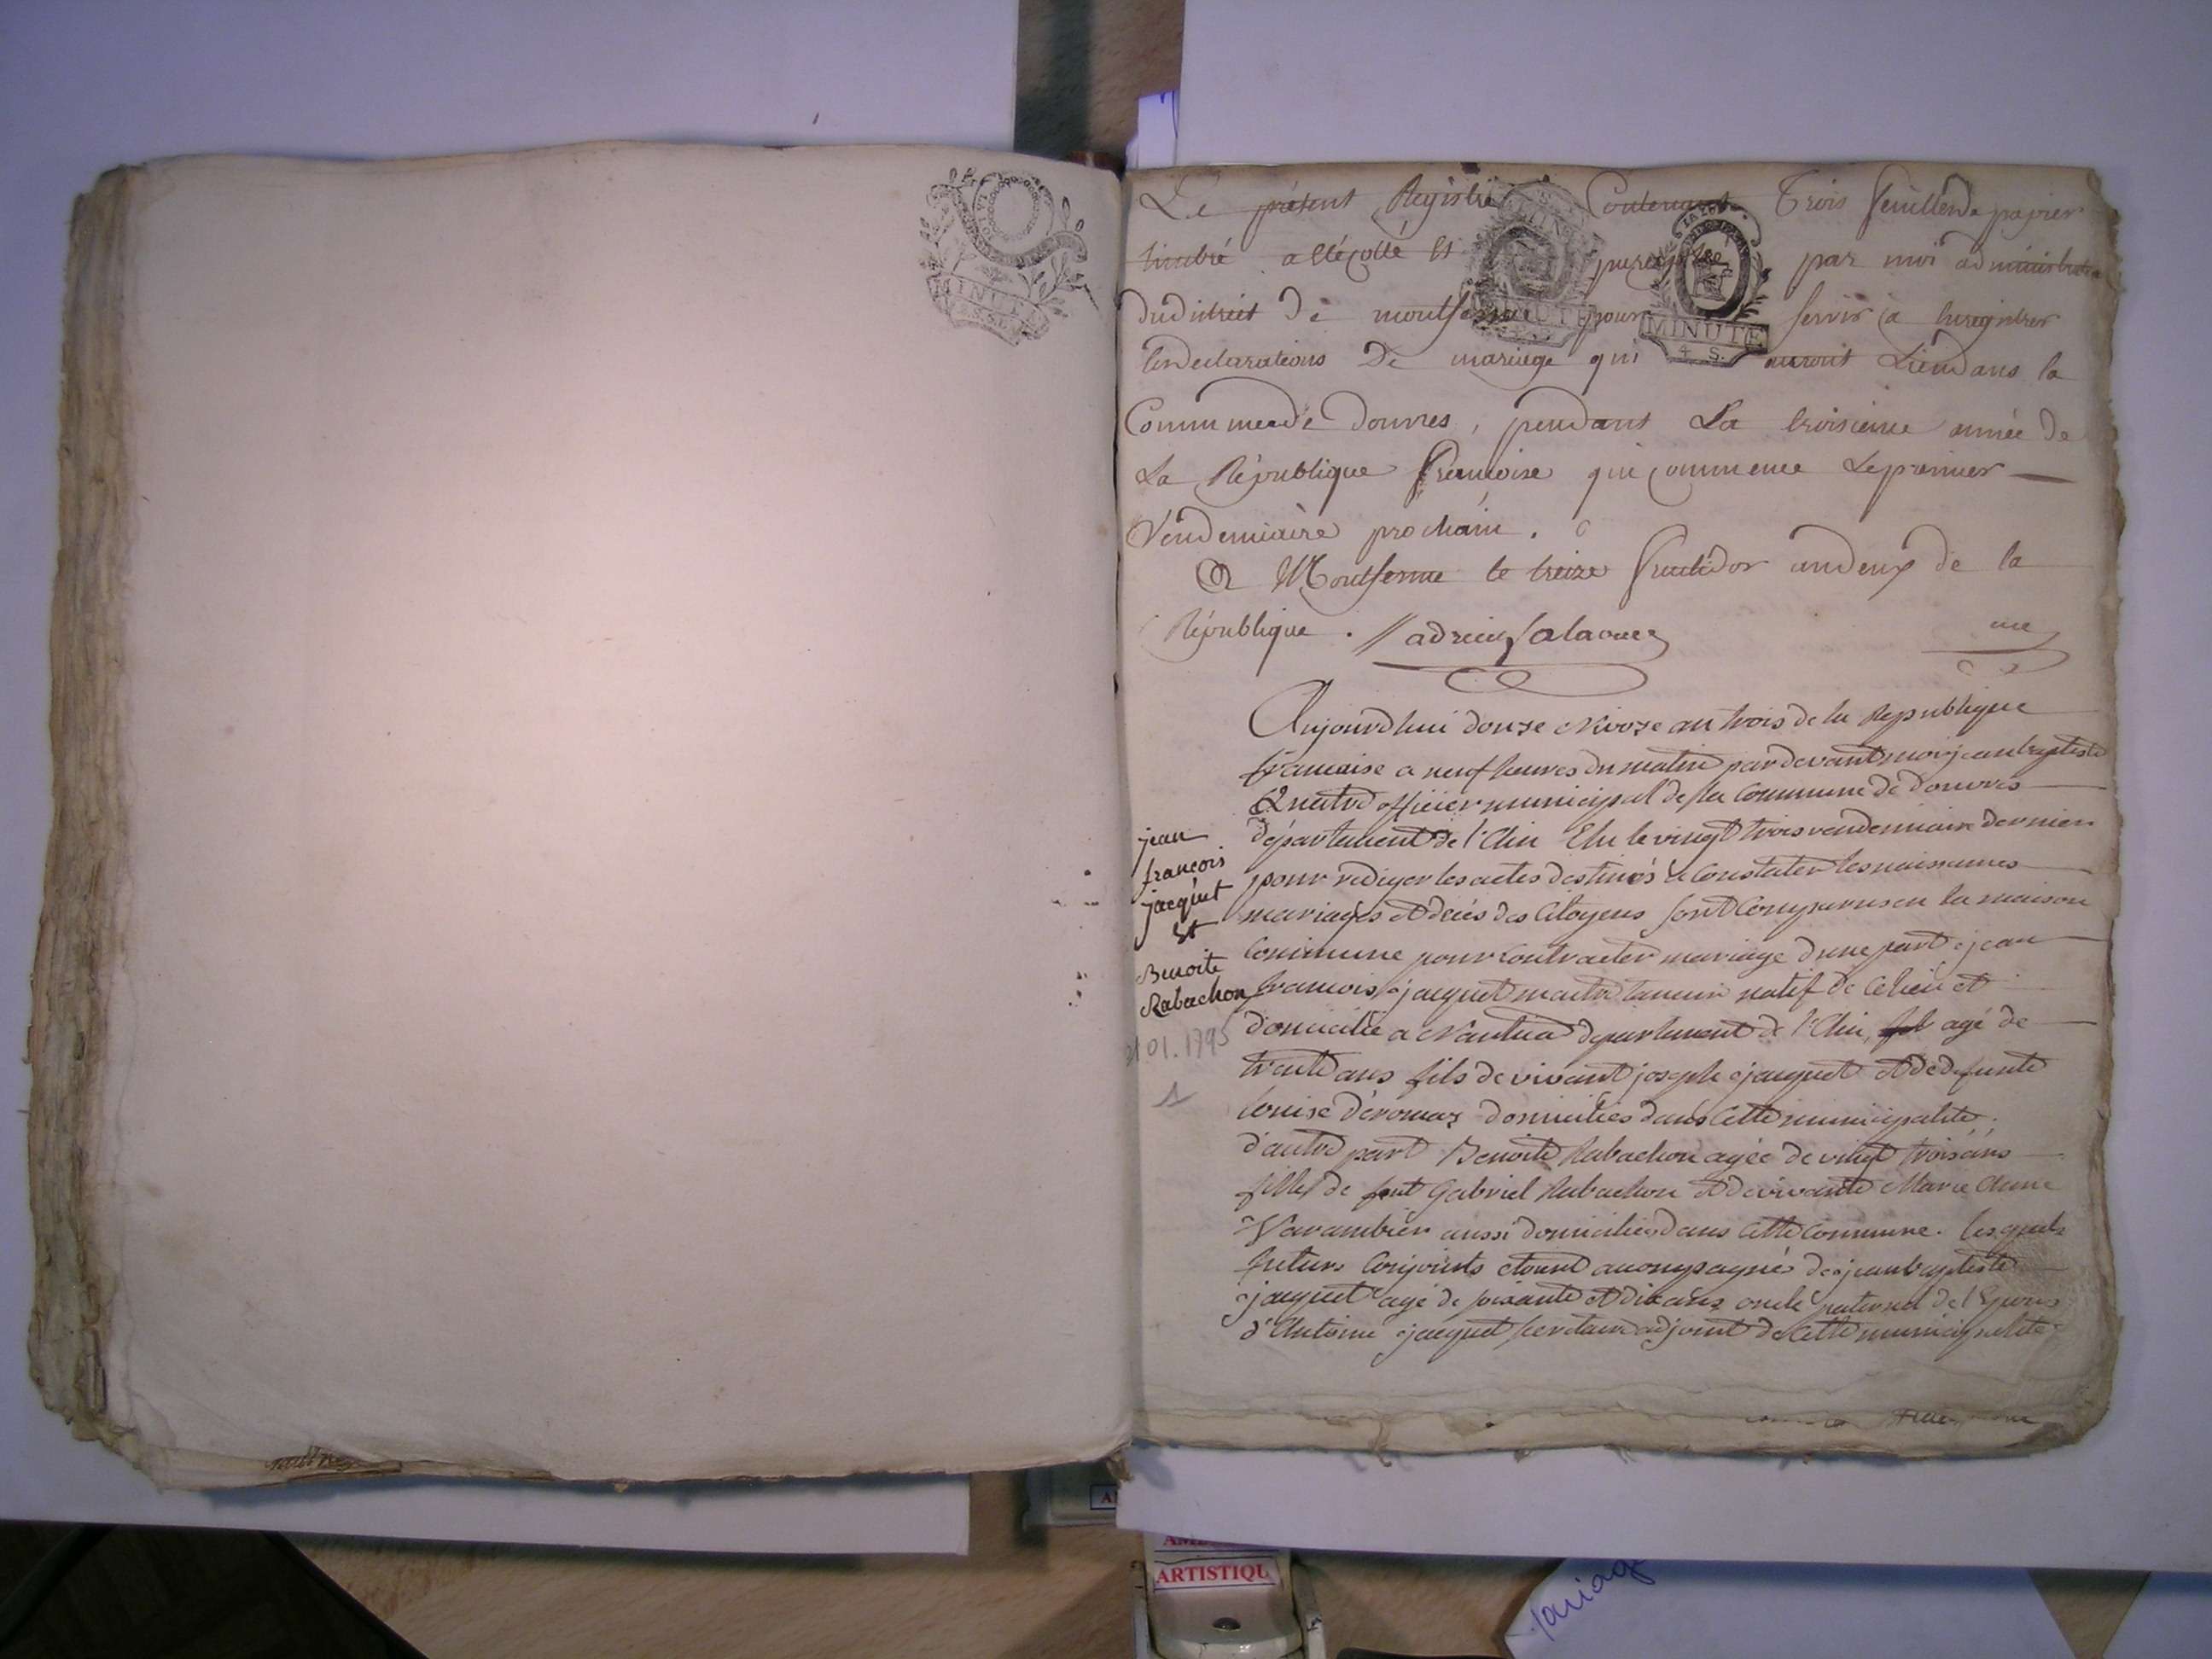 MINUTE
Le présent Registre Contenant Trois feuillets de papier
timbré a été cotté et par moi administrateur
du district de montferme pour servir a Enregistrer
les declarations de mariage qui auront Lieu dans la
Commune de douvres, pendant La troisieme année de
La République françoise qui commence Le premier
Vendemiaire prochain.
MINUTE
4 S.
A Montferme le treize fructidor an deux de la
République.
une
Aujourdhui douze Nivoze an trois de la Republique
francaise a neuf heures du matin par devant moi jean baptiste
officier municipal de la Commune de Douvres
département de l'Ain Elu le vingt trois vendemiaire dernier
pour rediger les actes destinés a Constater les naissances
mariages et décès des Citoyens sont Comparus en la maison
Commune pour contracter mariage dune part jean
francois jacquet natif de Ce lieu et
domicilié a Nantua departement de l'Ain, agé de
trente ans fils de vivant joseph jacquet et de defunte
louise domiciliés dans Cette municipalité.
d'autre part Benoite Rabachon agée de vingt trois ans
fille de feut Gabriel Rabachon et de vivante Marie Anne
Varambier aussi domiciliés dans Cette Commune. lesquels
futurs Conjoints etant acompagnés de jean baptiste
jacquet agé de soixante et dix ans oncle paternel de l'Epoux
d'Antoine jacquet secretaire adjoint de Cette municipalité
jean
francois
jacquet
Et
Benoite
Rabachon
01.1795
1
ARTISTIQU
mariage